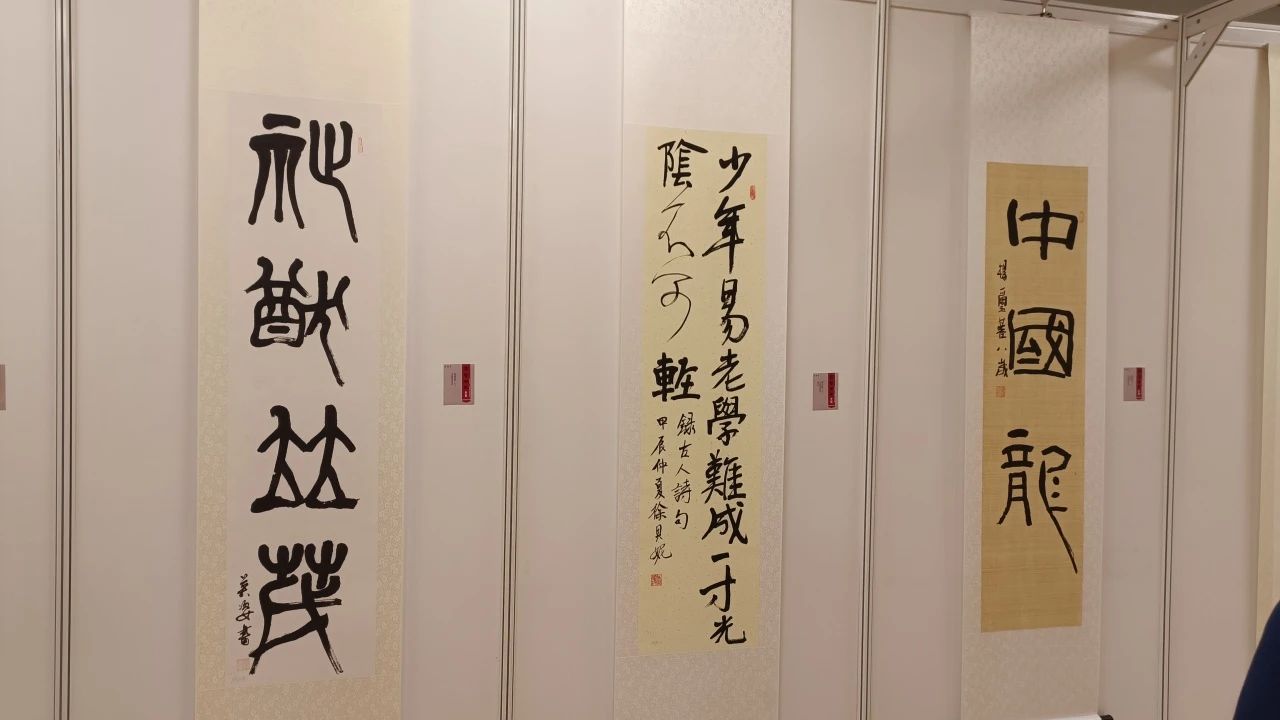 祉猷竝茂
書
少年易老學難成一寸光
陰不可輕
錄古人詩句
甲辰仲夏徐貝妮
中國龍
八歲